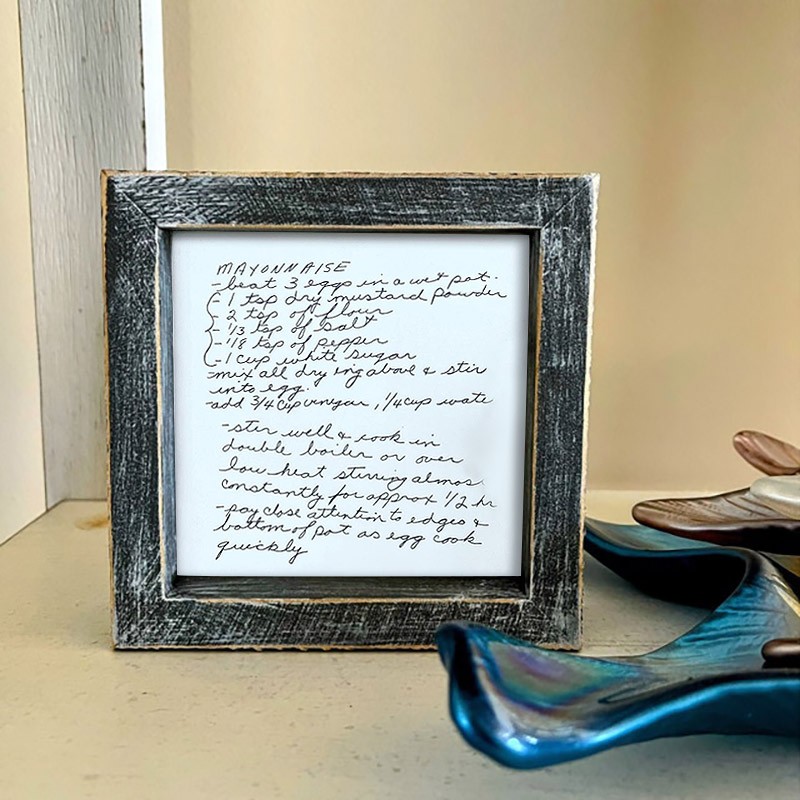 MAYONNAISE
- beat 3 eggs in a wet pot.
- 1 tsp dry mustard powder
- 2 tsp of flour
- 1/3 tsp of salt
- 1/8 tsp of pepper
- 1 cup white sugar
- mix all dry ing above & stir
into egg.
- add 3/4 cup vinegar, 1/4 cup wate
- stir well & cook in
double boiler or over
low heat stirring almos
constantly for approx 1/2 hr
- pay close attention to edges &
bottom of pot as egg cook
quickly